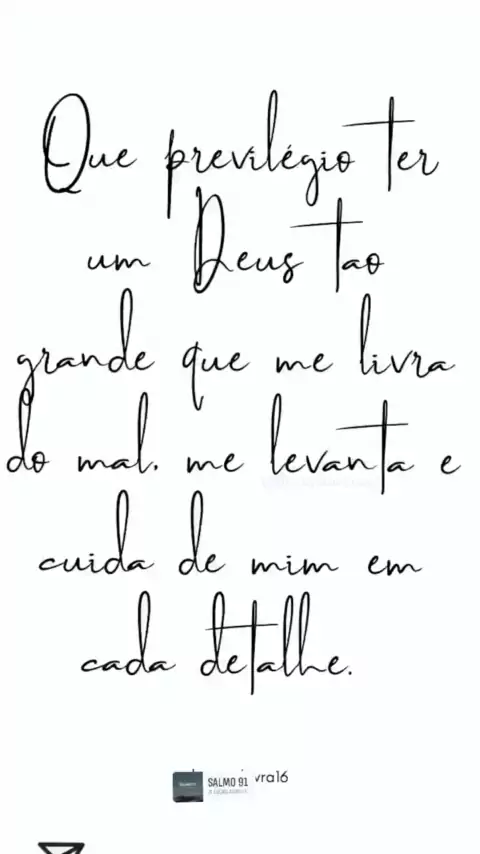 Que previlégio ter
um Deus tao
grande que me livra
do mal. me levanta e
cuida de mim em
cada detalhe.
SALMO 91
vra16